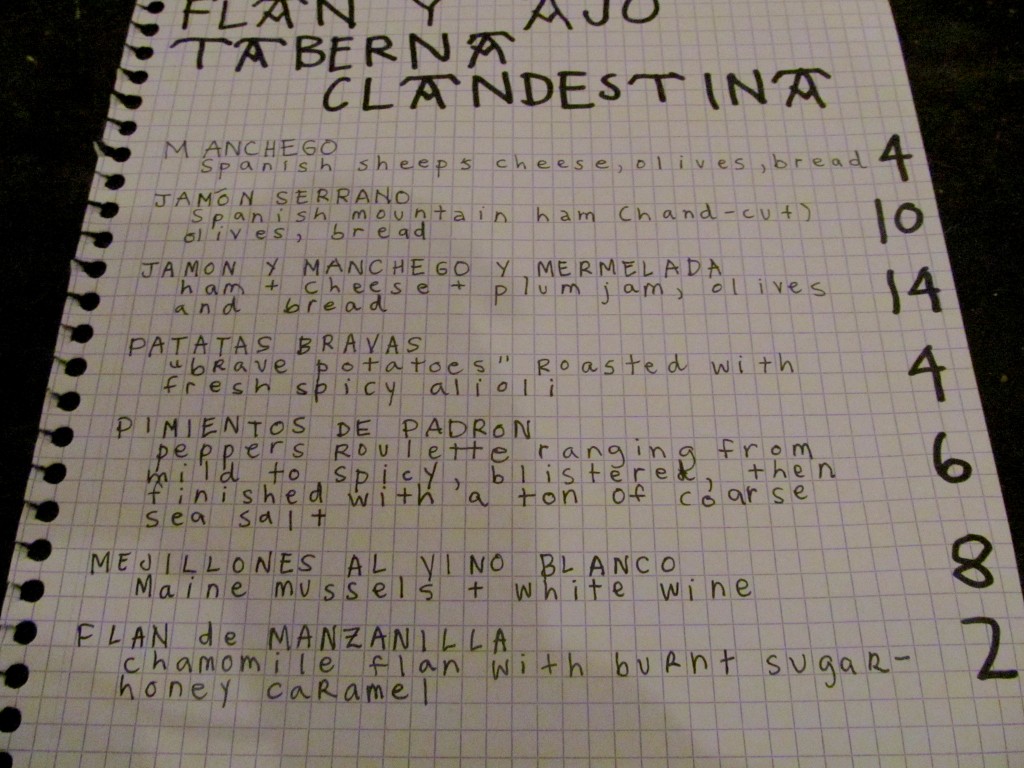 FLAN Y AJO
TABERNA
CLANDESTINA
MANCHEGO
Spanish sheeps cheese, olives, bread 4
JAMÓN SERRANO
Spanish mountain ham (hand-cut) 10
olives, bread
JAMON Y MANCHEGO Y MERMELADA
ham + cheese + plum jam, olives 14
and bread
PATATAS BRAVAS
"bRave potatoes" Roasted with 4
fresh spicy alioli
PIMIENTOS DE PADRON
peppers Roulette ranging from 6
mild to spicy, blistered, then
finished with a ton of coarse
sea salt
MEJILLONES AL VINO BLANCO 8
Maine mussels + white wine
FLAN de MANZANILLA 2
chamomile flan with buRnt sugaR-
honey caRamel